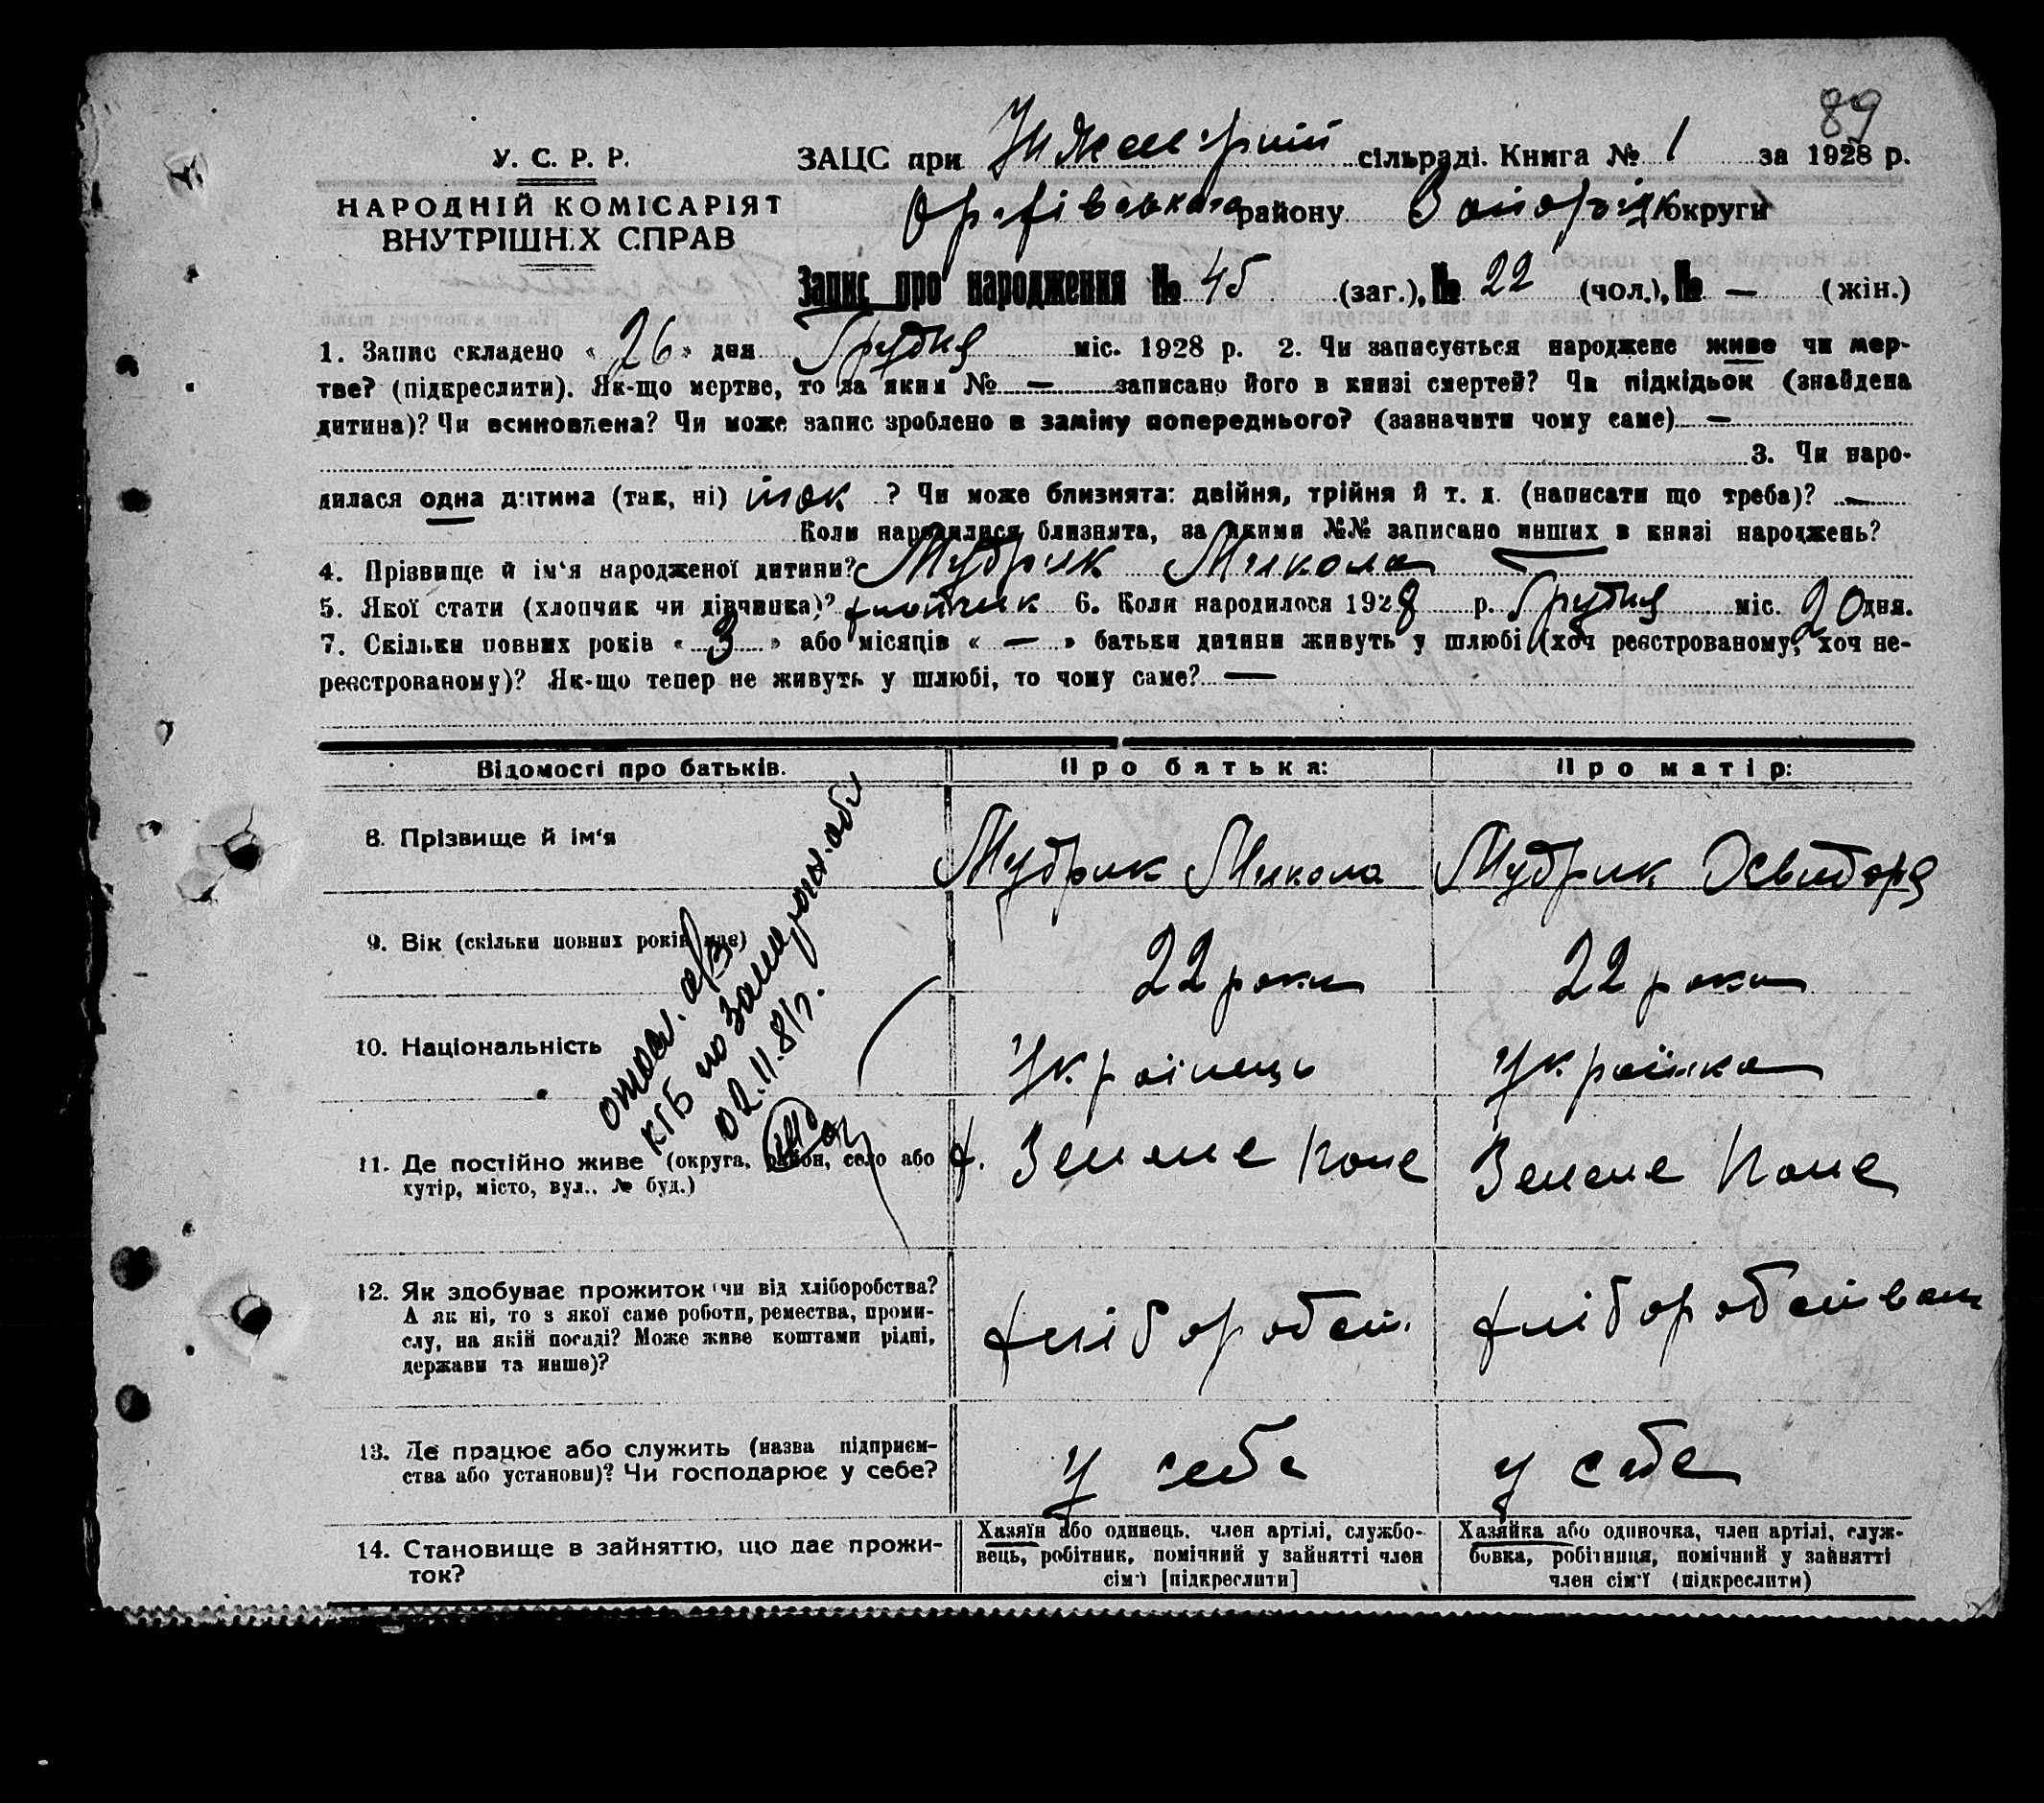 89
У. С. Р. Р.
НАРОДНІЙ КОМІСАРІЯТ
ВНУТРІШНІХ СПРАВ
ЗАЦС при сільраді. Книга № 1 за 1928 р.
району округи
Запис про народження № 45 (заг.), № 22 (чол.), № — (жін.)
1. Запис складено « 26 » дня Грудня міс. 1928 р. 2. Чи записується народжене живе чи мер-
тве? (підкреслити). Як-що мертве, то за яким № — записано його в книзі смертей? Чи підкідьок (знайдена
дитина)? Чи всиновлена? Чи може запис зроблено в заміну попереднього? (зазначити чому саме) —
3. Чи наро-
дилася одна дитина (так, ні) так ? Чи може близнята: двійня, трійня й т. д. (написати що треба)? —
Коли народилися близнята, за якими №№ записано инших в книзі народжень? —
4. Прізвище й ім'я народженої дитини? Мудрик Микола
5. Якої стати (хлопчик чи дівчинка)? хлопчик 6. Коли народилося 1928 р. Грудня міс. 20 дня.
7. Скільки повних років « 3 » або місяців « — » батьки дитини живуть у шлюбі (хоч реєстрованому, хоч не-
реєстрованому)? Як-що тепер не живуть у шлюбі, то чому саме? —
Відомості про батьків. Про батька: Про матір:
8. Прізвище й ім'я Мудрик Микола Мудрик
9. Вік (скільки повних років має) 22 роки 22 роки
10. Національність Українець Українка
11. Де постійно живе (округа, район, село або х. Зелене Поле Зелене Поле
хутір, місто, вул., № буд.)
12. Як здобуває прожиток (чи від хліборобства? хліборобств. хліборобством
А як ні, то з якої саме роботи, ремества, проми-
слу, на якій посаді? Може живе коштами рідні,
держави та инше)?
13. Де працює або служить (назва підприєм- у себе у себе
ства або установи)? Чи господарює у себе?
14. Становище в зайняттю, що дає прожи-
ток?
Хазяїн або одинець, член артілі, службо-
вець, робітник, помічний у зайнятті член
сім'ї [підкреслити]
Хазяйка або одиночка, член артілі, служ-
бовка, робітниця, помічний у зайнятті
член сім'ї (підкреслити)
КГБ по
02.11.81г.